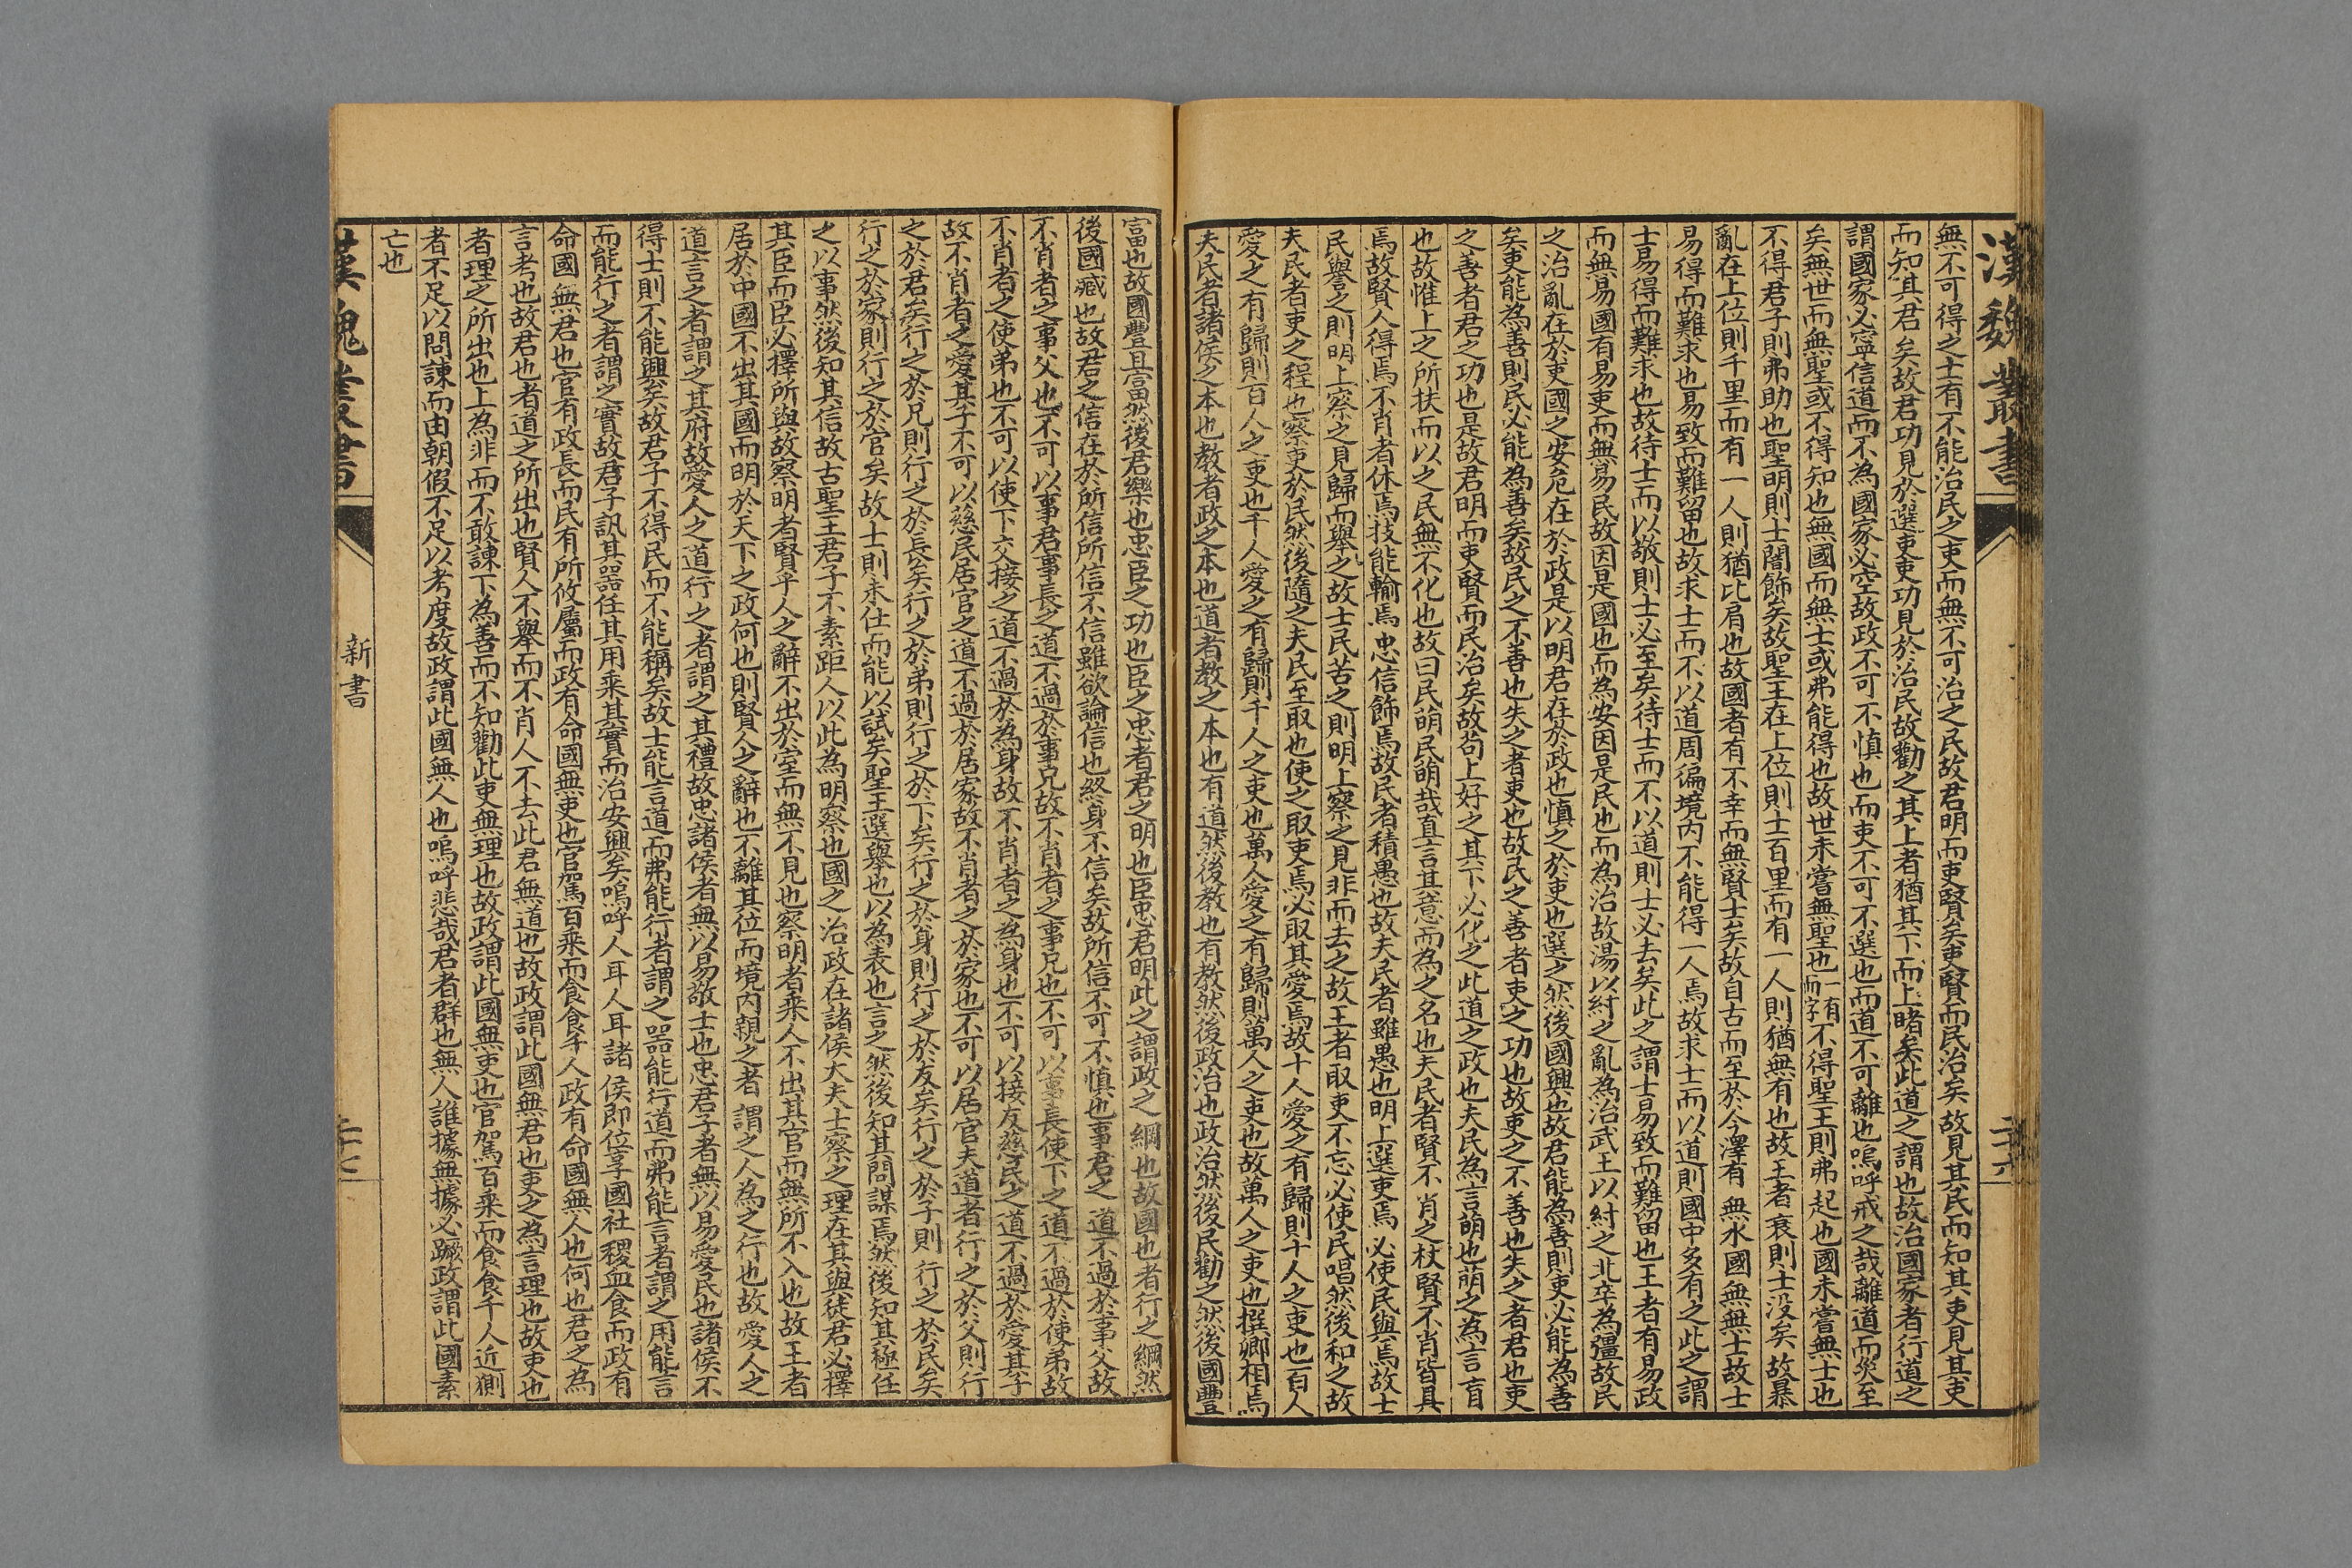 漢魏叢書
二十六
無不可得之士有不能治民之吏而無不可治之民故君明而吏賢矣吏賢而民治矣故見其民而知其吏見其吏
而知其君矣故君功見於選吏吏功見於治民故勸之其上者猶其下而上睹矣此道之謂也故治國家者行道之
謂國家必寧信道而不為國家必空故政不可不慎也而吏不可不選也而道不可離也嗚呼戒之哉離道而災至
矣無世而無聖或不得知也無國而無士或弗能得也故世未嘗無聖也一有而字不得聖王則弗起也國未嘗無士也
不得君子則弗助也聖明則士闇飾矣故聖王在上位則士百里而有一人則猶無有也故王者衰則士没矣故暴
亂在上位則千里而有一人則猶比肩也故國者有不幸而無賢士矣故自古而至於今澤有無水國無無士故士
易得而難求也易致而難留也故求士而不以道周徧境内不能得一人焉故求士而以道則國中多有之此之謂
士易得而難求也故待士而以敬則士必至矣待士而不以道則士必去矣此之謂士易致而難留也王者有易政
而無易國有易吏而無易民故因是國也而為安因是民也而為治故湯以紂之亂為治武王以紂之北卒為彊故民
之治亂在於吏國之安危在於政是以明君在於政也慎之於吏也選之然後國興也故君能為善則吏必能為善
矣吏能為善則民必能為善矣故民之不善也失之者吏也故民之善者吏之功也故吏之不善也失之者君也吏
之善者君之功也是故君明而吏賢而民治矣故苟上好之其下必化之此道之政也夫民為言萌也萌之為言盲
也故惟上之所扶而以之民無不化也故曰民萌民萌哉直言其意而為之名也夫民者賢不肖之杖賢不肖皆具
焉故賢人得焉不肖者休焉技能輸焉忠信飾焉故民者積愚也故夫民者雖愚也明上選吏焉必使民與焉故士
民譽之則明上察之見歸而舉之故士民苦之則明上察之見非而去之故王者取吏不忘必使民唱然後和之故
夫民者吏之程也察吏於民然後隨之夫民至取也使之取吏焉必取其愛焉故十人愛之有歸則十人之吏也百人
愛之有歸則百人之吏也千人愛之有歸則千人之吏也萬人愛之有歸則萬人之吏也故萬人之吏也撰卿相焉
夫民者諸侯之本也教者政之本也道者教之本也有道然後教也有教然後政治也政治然後民勸之然後國豐
富也故國豐且富然後君樂也忠臣之功也臣之忠者君之明也臣忠君明此之謂政之綱也故國也者行之綱然
後國臧也故君之信在於所信所信不信雖欲論信也終身不信矣故所信不可不慎也事君之道不過於事父故
不肖者之事父也不可以事君事長之道不過於事兄故不肖者之事兄也不可以事長使下之道不過於使弟故
不肖者之使弟也不可以使下交接之道不過於為身故不肖者之為身也不可以接友慈民之道不過於愛其子
故不肖者之愛其子不可以慈民居官之道不過於居家故不肖者之於家也不可以居官夫道者行之於父則行
之於君矣行之於兄則行之於長矣行之於弟則行之於下矣行之於身則行之於友矣行之於子則行之於民矣
行之於家則行之於官矣故士則未仕而能以試矣聖王選舉也以為表也言之然後知其問謀焉然後知其極任
之以事然後知其信故古聖王君子不素距人以此為明察也國之治政在諸侯大夫士察之理在其與徒君必擇
其臣而臣必擇所與故察明者賢乎人之辭不出於室而無不見也察明者乘人不出其官而無所不入也故王者
居於中國不出其國而明於天下之政何也則賢人之辭也不離其位而境内親之者謂之人為之行也故愛人之
道言之者謂之其府故愛人之道行之者謂之其禮故忠諸侯者無以易敬士也忠君子者無以易愛民也諸侯不
得士則不能興矣故君子不得民而不能稱矣故士能言道而弗能行者謂之器能行道而弗能言者謂之用能言
而能行之者謂之實故君子訊其器任其用乘其實而治安興矣嗚呼人耳人耳諸侯即位享國社稷血食而政有
命國無君也官有政長而民有所攸屬而政有命國無吏也官駕百乘而食食千人政有命國無人也何也君之為
言考也故君也者道之所出也賢人不舉而不肖人不去此君無道也故政謂此國無君也吏之為言理也故吏也
者理之所出也上為非而不敢諫下為善而不知勸此吏無理也故政謂此國無吏也官駕百乘而食食千人近側
者不足以問諫而由朝假不足以考度故政謂此國無人也嗚呼悲哉君者群也無人誰據無據必蹶政謂此國素
亡也
漢魏叢書
新書
二十七